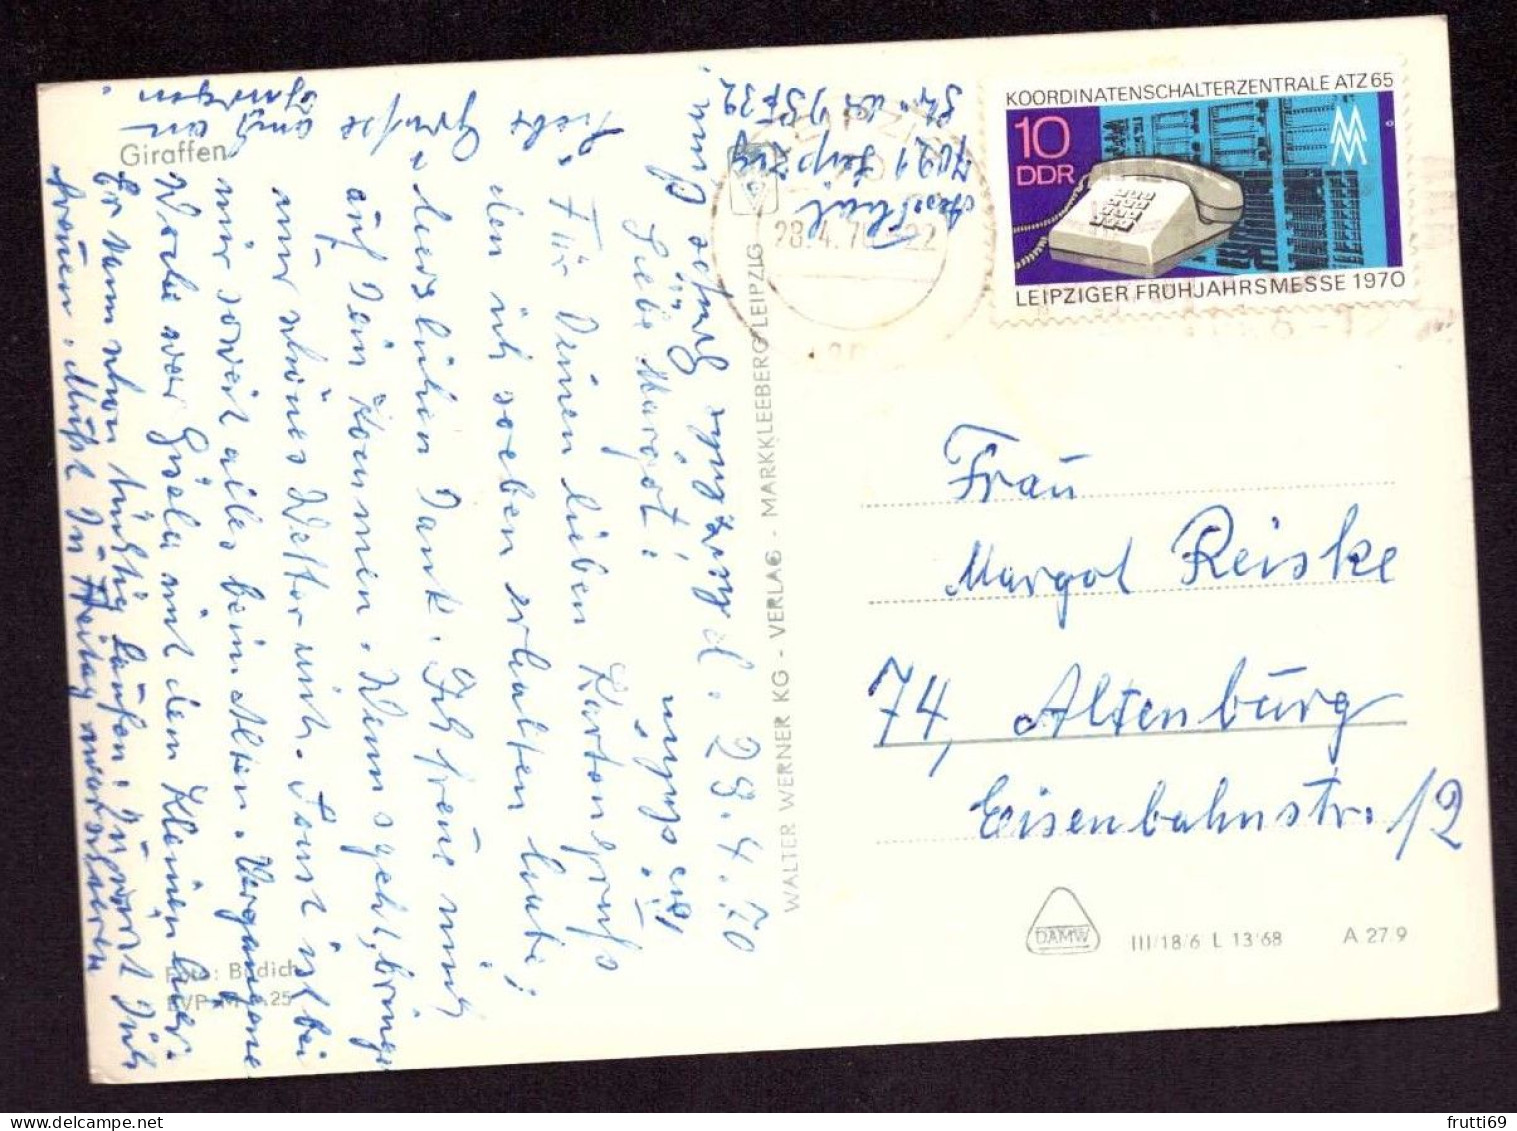 Giraffen
KOORDINATENSCHALTERZENTRALE ATZ 65
10
DDR
LEIPZIGER FRÜHJAHRSMESSE 1970
28.4.70-22
7021 Leipzig
29.4.70
Liebe Margot!
Für Deinen lieben Kartengruß
den ich soeben erhalten habe,
herzlichen Dank. Ich freue mich
auf Dein Kommen. Wenn's geht, bringe
nur schönes Wetter mit. Sonst ist bei
mir soweit alles beim Alten. Vergangene
Woche war Gisela mit dem Kleinen hier.
Er kann schon tüchtig laufen. Du wirst Dich
freuen. Mußt Du Freitag
Liebe Grüße auch an
WALTER WERNER KG - VERLAG - MARKKLEEBERG-LEIPZIG
Frau
Margot Reiske
74, Altenburg
Eisenbahnstr. 12
DAMW
III/18/6 L 13/68
A 27.9
Foto: Budich
25
frutti69